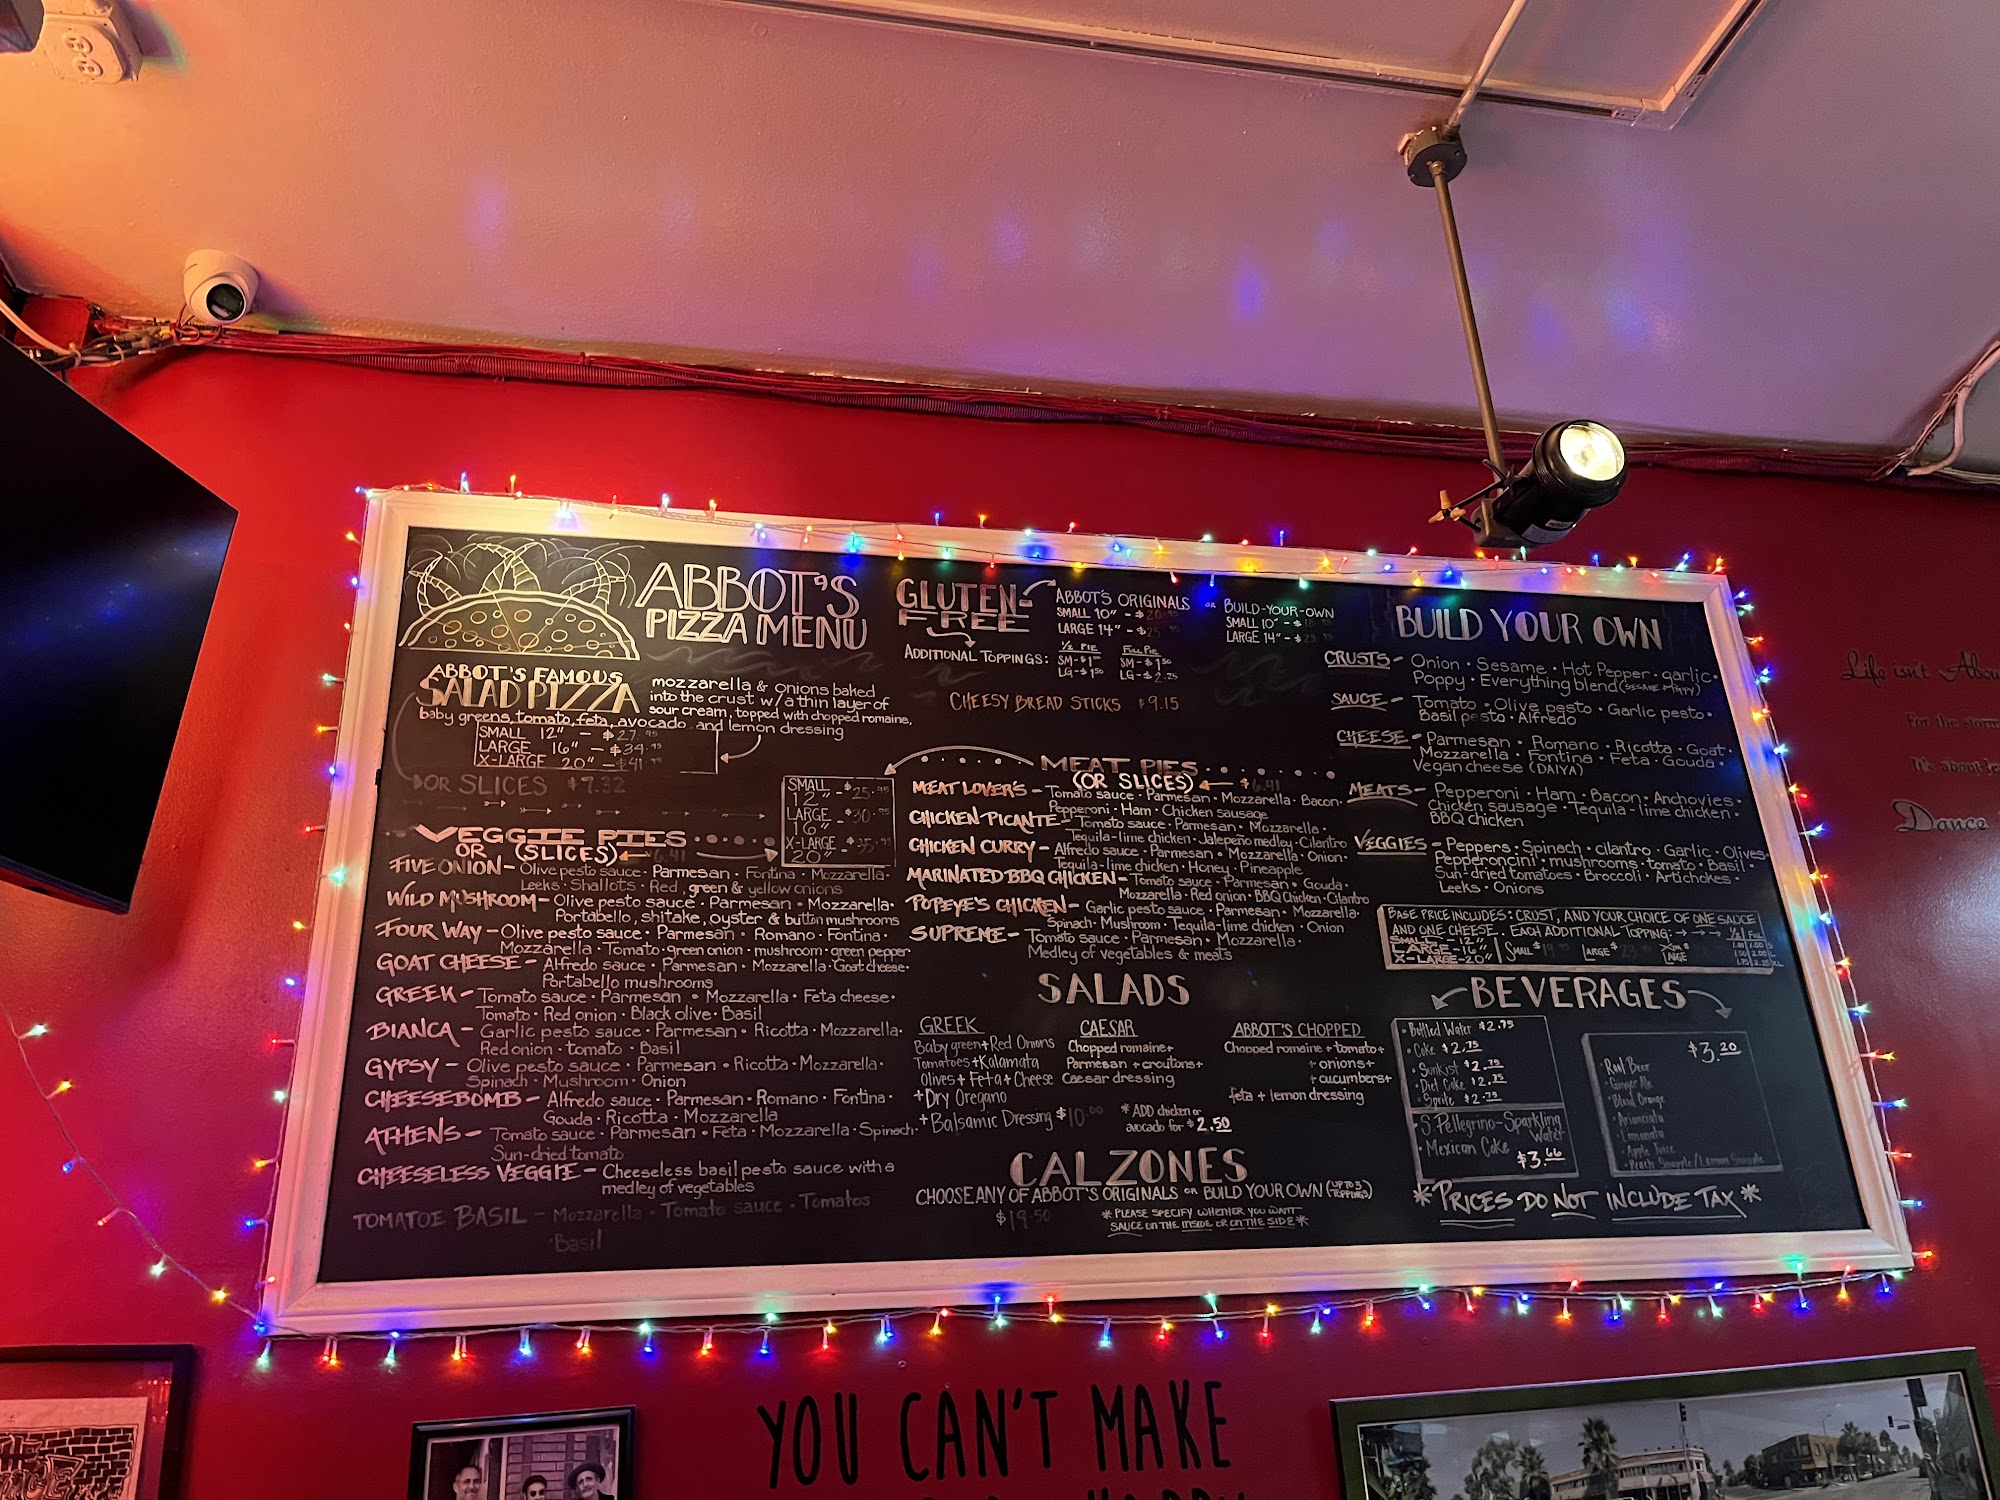 ABBOT'S
PIZZA MENU
ABBOT'S FAMOUS
SALAD PIZZA
mozzarella & onions baked
into the crust w/a thin layer of
sour cream, topped with chopped romaine,
baby greens, tomato, feta, avocado and lemon dressing
SMALL 12" - $27.95
LARGE 16" - $34.95
X-LARGE 20" - $41.95
OR SLICES $7.32
VEGGIE PIES
OR (SLICES) 6.41
SMALL 12" - $25.95
LARGE 16" - $30.95
X-LARGE 20" - $35.95
FIVE ONION - Olive pesto sauce · Parmesan · Fontina · Mozzarella ·
Leeks · Shallots · Red, green & yellow onions
WILD MUSHROOM - Olive pesto sauce · Parmesan · Mozzarella ·
Portabello, shitake, oyster & button mushrooms
FOUR WAY - Olive pesto sauce · Parmesan · Romano · Fontina ·
Mozzarella · Tomato · green onion · mushroom · green pepper
GOAT CHEESE - Alfredo sauce · Parmesan · Mozzarella · Goat cheese ·
Portabello mushrooms
GREEK - Tomato sauce · Parmesan · Mozzarella · Feta cheese ·
Tomato · Red onion · Black olive · Basil
BIANCA - Garlic pesto sauce · Parmesan · Ricotta · Mozzarella ·
Red onion · tomato · Basil
GYPSY - Olive pesto sauce · Parmesan · Ricotta · Mozzarella ·
Spinach · Mushroom · Onion
CHEESEBOMB - Alfredo sauce · Parmesan · Romano · Fontina ·
Gouda · Ricotta · Mozzarella
ATHENS - Tomato sauce · Parmesan · Feta · Mozzarella · Spinach ·
Sun-dried tomato
CHEESELESS VEGGIE - Cheeseless basil pesto sauce with a
medley of vegetables
TOMATOE BASIL - Mozzarella · Tomato sauce · Tomatos
· Basil
GLUTEN-
FREE
ABBOT'S ORIGINALS
SMALL 10" - $20.95
LARGE 14" - $25.95
OR BUILD-YOUR-OWN
SMALL 10"
LARGE 14"
ADDITIONAL TOPPINGS:
1/2 PIE
SM - $1
LG - $1.50
FULL PIE
SM - $1.50
LG - $2.25
CHEESY BREAD STICKS $9.15
MEAT PIES
(OR SLICES) $6.41
MEAT LOVER'S - Tomato sauce · Parmesan · Mozzarella · Bacon ·
Pepperoni · Ham · Chicken sausage
CHICKEN PICANTE - Tomato sauce · Parmesan · Mozzarella ·
Tequila-lime chicken · Jalepeño medley · Cilantro
CHICKEN CURRY - Alfredo sauce · Parmesan · Mozzarella · Onion ·
Tequila-lime chicken · Honey · Pineapple
MARINATED BBQ CHICKEN - Tomato sauce · Parmesan · Gouda ·
Mozzarella · Red onion · BBQ Chicken · Cilantro
POPEYE'S CHICKEN - Garlic pesto sauce · Parmesan · Mozzarella ·
Spinach · Mushroom · Tequila-lime chicken · Onion
SUPREME - Tomato sauce · Parmesan · Mozzarella ·
Medley of vegetables & meats
SALADS
GREEK
Baby green + Red Onions
Tomatoes + Kalamata
Olives + Feta + Cheese
+ Dry Oregano
+ Balsamic Dressing $10.00
CAESAR
Chopped romaine +
Parmesan + croutons +
Caesar dressing
* ADD chicken or
avocado for $2.50
ABBOT'S CHOPPED
Chopped romaine + tomato +
+ onions +
+ cucumbers +
feta + lemon dressing
CALZONES
CHOOSE ANY OF ABBOT'S ORIGINALS OR BUILD YOUR OWN (UP TO 3 TOPPINGS)
$19.50
* PLEASE SPECIFY WHETHER YOU WANT
SAUCE ON THE INSIDE OR ON THE SIDE *
BUILD YOUR OWN
CRUSTS - Onion · Sesame · Hot Pepper · garlic ·
Poppy · Everything blend (SESAME + POPPY)
SAUCE - Tomato · Olive pesto · Garlic pesto ·
Basil pesto · Alfredo
CHEESE - Parmesan · Romano · Ricotta · Goat ·
Mozzarella · Fontina · Feta · Gouda ·
Vegan cheese (DAIYA)
MEATS - Pepperoni · Ham · Bacon · Anchovies ·
Chicken sausage · Tequila-lime chicken ·
BBQ chicken
VEGGIES - Peppers · Spinach · cilantro · Garlic · Olives ·
Pepperoncini · mushrooms · tomato · Basil ·
Sun-dried tomatoes · Broccoli · Artichokes ·
Leeks · Onions
BASE PRICE INCLUDES: CRUST, AND YOUR CHOICE OF ONE SAUCE
AND ONE CHEESE. EACH ADDITIONAL TOPPING:
SMALL - 12"
LARGE - 16"
X-LARGE - 20"
SMALL
LARGE
LARGE
BEVERAGES
· Bottled Water $2.75
· Coke $2.75
· Sunkist $2.75
· Diet Coke $2.75
· Sprite $2.75
· S. Pellegrino - Sparkling
Water
· Mexican Coke $3.66
$3.20
· Root Beer
· Ginger Ale
· Blood Orange
· Aranciata
· Limonata
· Apple Juice
· Peach Snapple / Lemon Snapple
* PRICES DO NOT INCLUDE TAX *
Life isn't Abou
For the storm
It's about le
Dance
YOU CAN'T MAKE